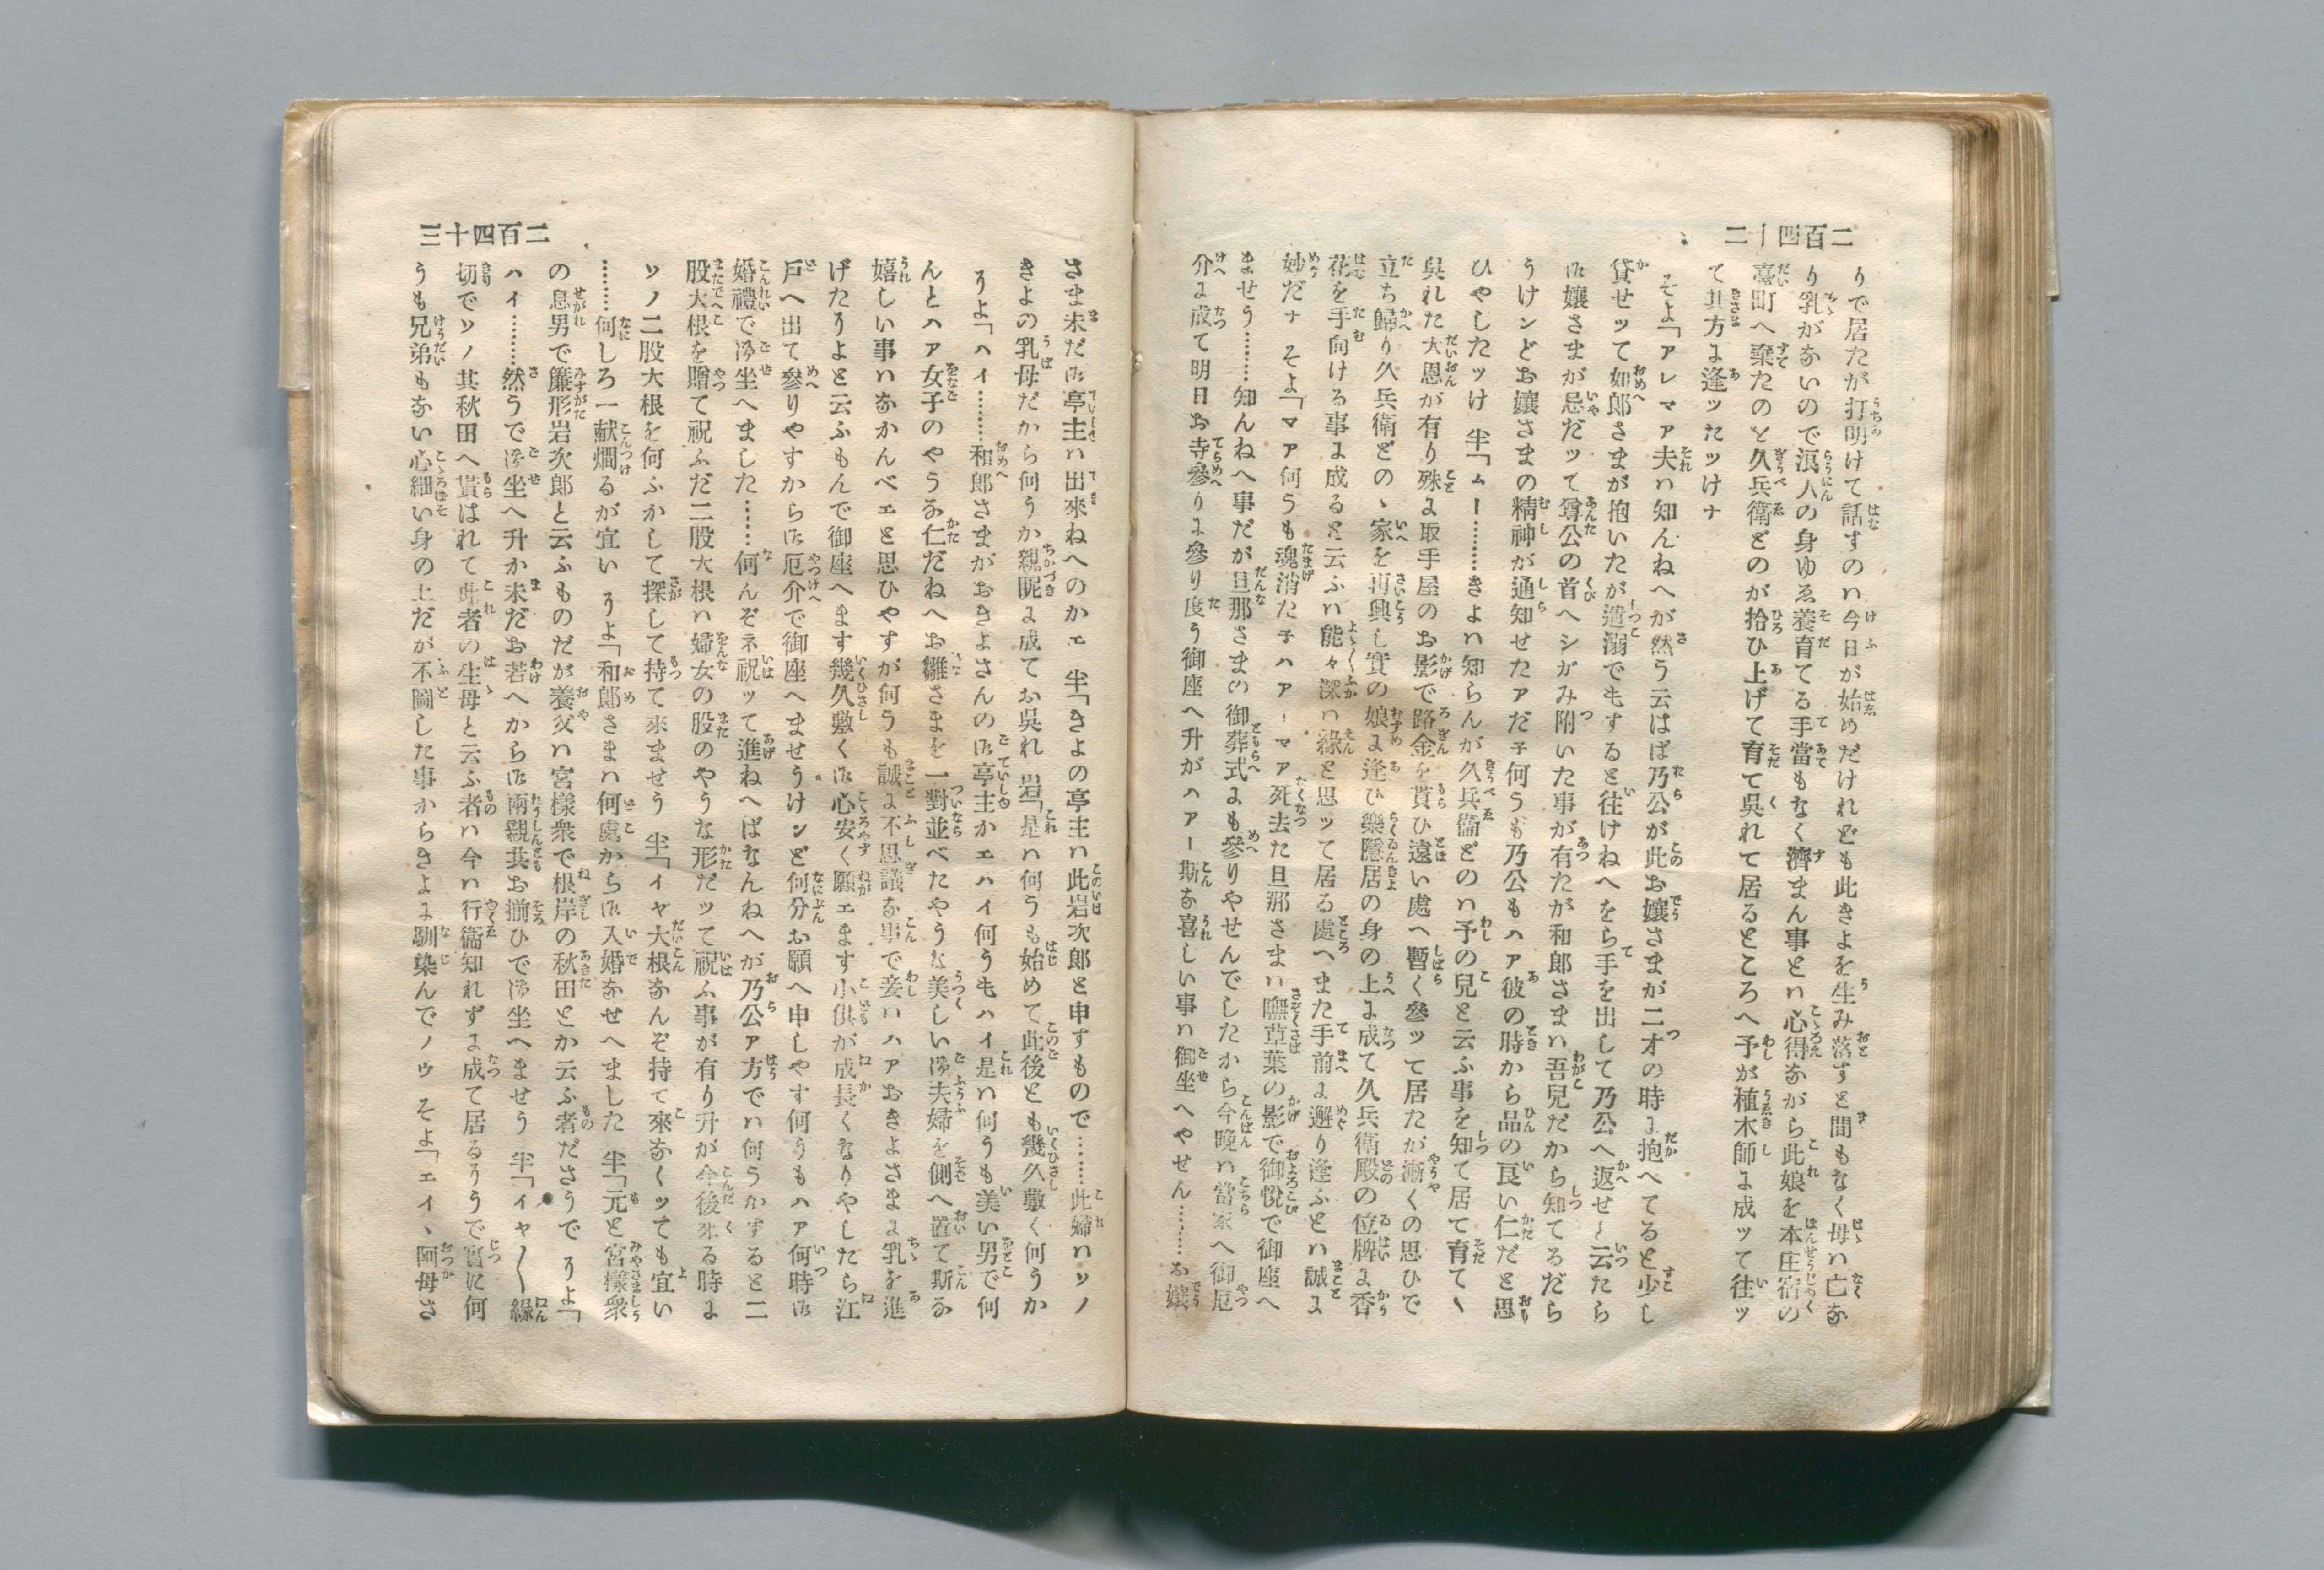 二百四十二
りで居たが打明けて話すのハ今日が始めだけれども此きよを生み落すと間もなく母ハ亡な
り乳がないので浪人の身ゆゑ養育てる手當もなく濟まん事とハ心得ながら此娘を本庄宿の
臺町へ棄たのと久兵衛どのが拾ひ上げて育て呉れて居るところへ予が植木師に成ッて往ッ
て其方に逢ッたッけナ
そよ「アレマア夫ハ知んねへが然う云はば乃公が此お孃さまが二才の時に抱へてると少し
貸せッて如郎さまが抱いたが遣溺でもすると往けねへをら手を出して乃公へ返せ〳〵云たら
お孃さまが忌だッて尊公の首へシがみ附いた事が有たが和郎さまハ吾兒だから知てるだら
うけンどお孃さまの精神が通知せたアだ子何うも乃公もハア彼の時から品の良い仁だと思
ひやしたッけ 半「ムー………きよハ知らんが久兵衞どのハ予の兒と云ふ事を知て居て育て〳〵
呉れた大恩が有り殊に取手屋のお影で路金を貰ひ遠い處へ暫く參ッて居たが漸くの思ひで
立ち歸り久兵衛どのゝ家を再興し實の娘に逢ひ樂隱居の身の上に成て久兵衛殿の位牌に香
花を手向ける事に成ると云ふハ能々深ハ緣と思ッて居る處へまた手前に邂り逢ふとハ誠に
妙だナ そよ「マア何うも魂消た子ハアーマア死去た旦那さまハ嘸草葉の影で御悅で御座へ
ませう………知んねへ事だが旦那さまの御葬式にも參りやせんでしたから今晩ハ當家へ御厄
介に成て明日お寺參りに參り度う御座へ升がハアー斯な喜しい事ハ御坐へやせん………お孃
二百四十三
さま未だお亭主ハ出來ねへのかエ 半「きよの亭主ハ此岩次郎と申すもので……此婦ハソノ
きよの乳母だから何うか親昵に成てお呉れ 岩「是ハ何うも始めて此後とも幾久敷く何うか
そよ「ハイ………和郎さまがおきよさんのお亭主かエハイ何うもハイ是ハ何うも美い男で何
んとハア女子のやうな仁だねへお雛さまを一對並べたやうな美しい御夫婦を側へ置て斯な
嬉しい事ハなかんベエと思ひやすが何うも誠に不思議な事で妾ハハアおきよさまに乳を進
げたりよと云ふもんで御座へます幾久敷くお心安く願エます小供が成長くなりやしたら江
戸へ出て參りやすからお厄介で御座へませうけンど何分お願へ申しやす何うもハア何時お
婚禮で御坐へました……何んぞネ祝ッて進ねへばなんねへが乃公ア方でハ何うかすると二
股大根を贈て祝ふだ二股大根ハ婦女の股のやうな形だッて祝ふ事が有り升が今後來る時に
ソノ二股大根を何ふかして探して持て來ませう 半「イヤ大根なんぞ持て來なくッても宜い
………何しろ一献燗るが宜い そよ「和郎さまハ何處からお入婚なせへました 半「元と宮樣衆
の息男で簾形岩次郎と云ふものだが養父ハ宮樣衆で根岸の秋田とか云ふ者ださうで そよ「
ハイ………然うで御坐へ升か未だお若へからお兩親共お揃ひで御坐へませう 半「イヤ〳〵緣
切でソノ其秋田へ貰はれて此者の生母と云ふ者ハ今ハ行衞知れずに成て居るさうで實に何
うも兄弟もない心細い身の上だが不圖した事からきよに馴染んでノウ そよ「エイヽ阿母さ